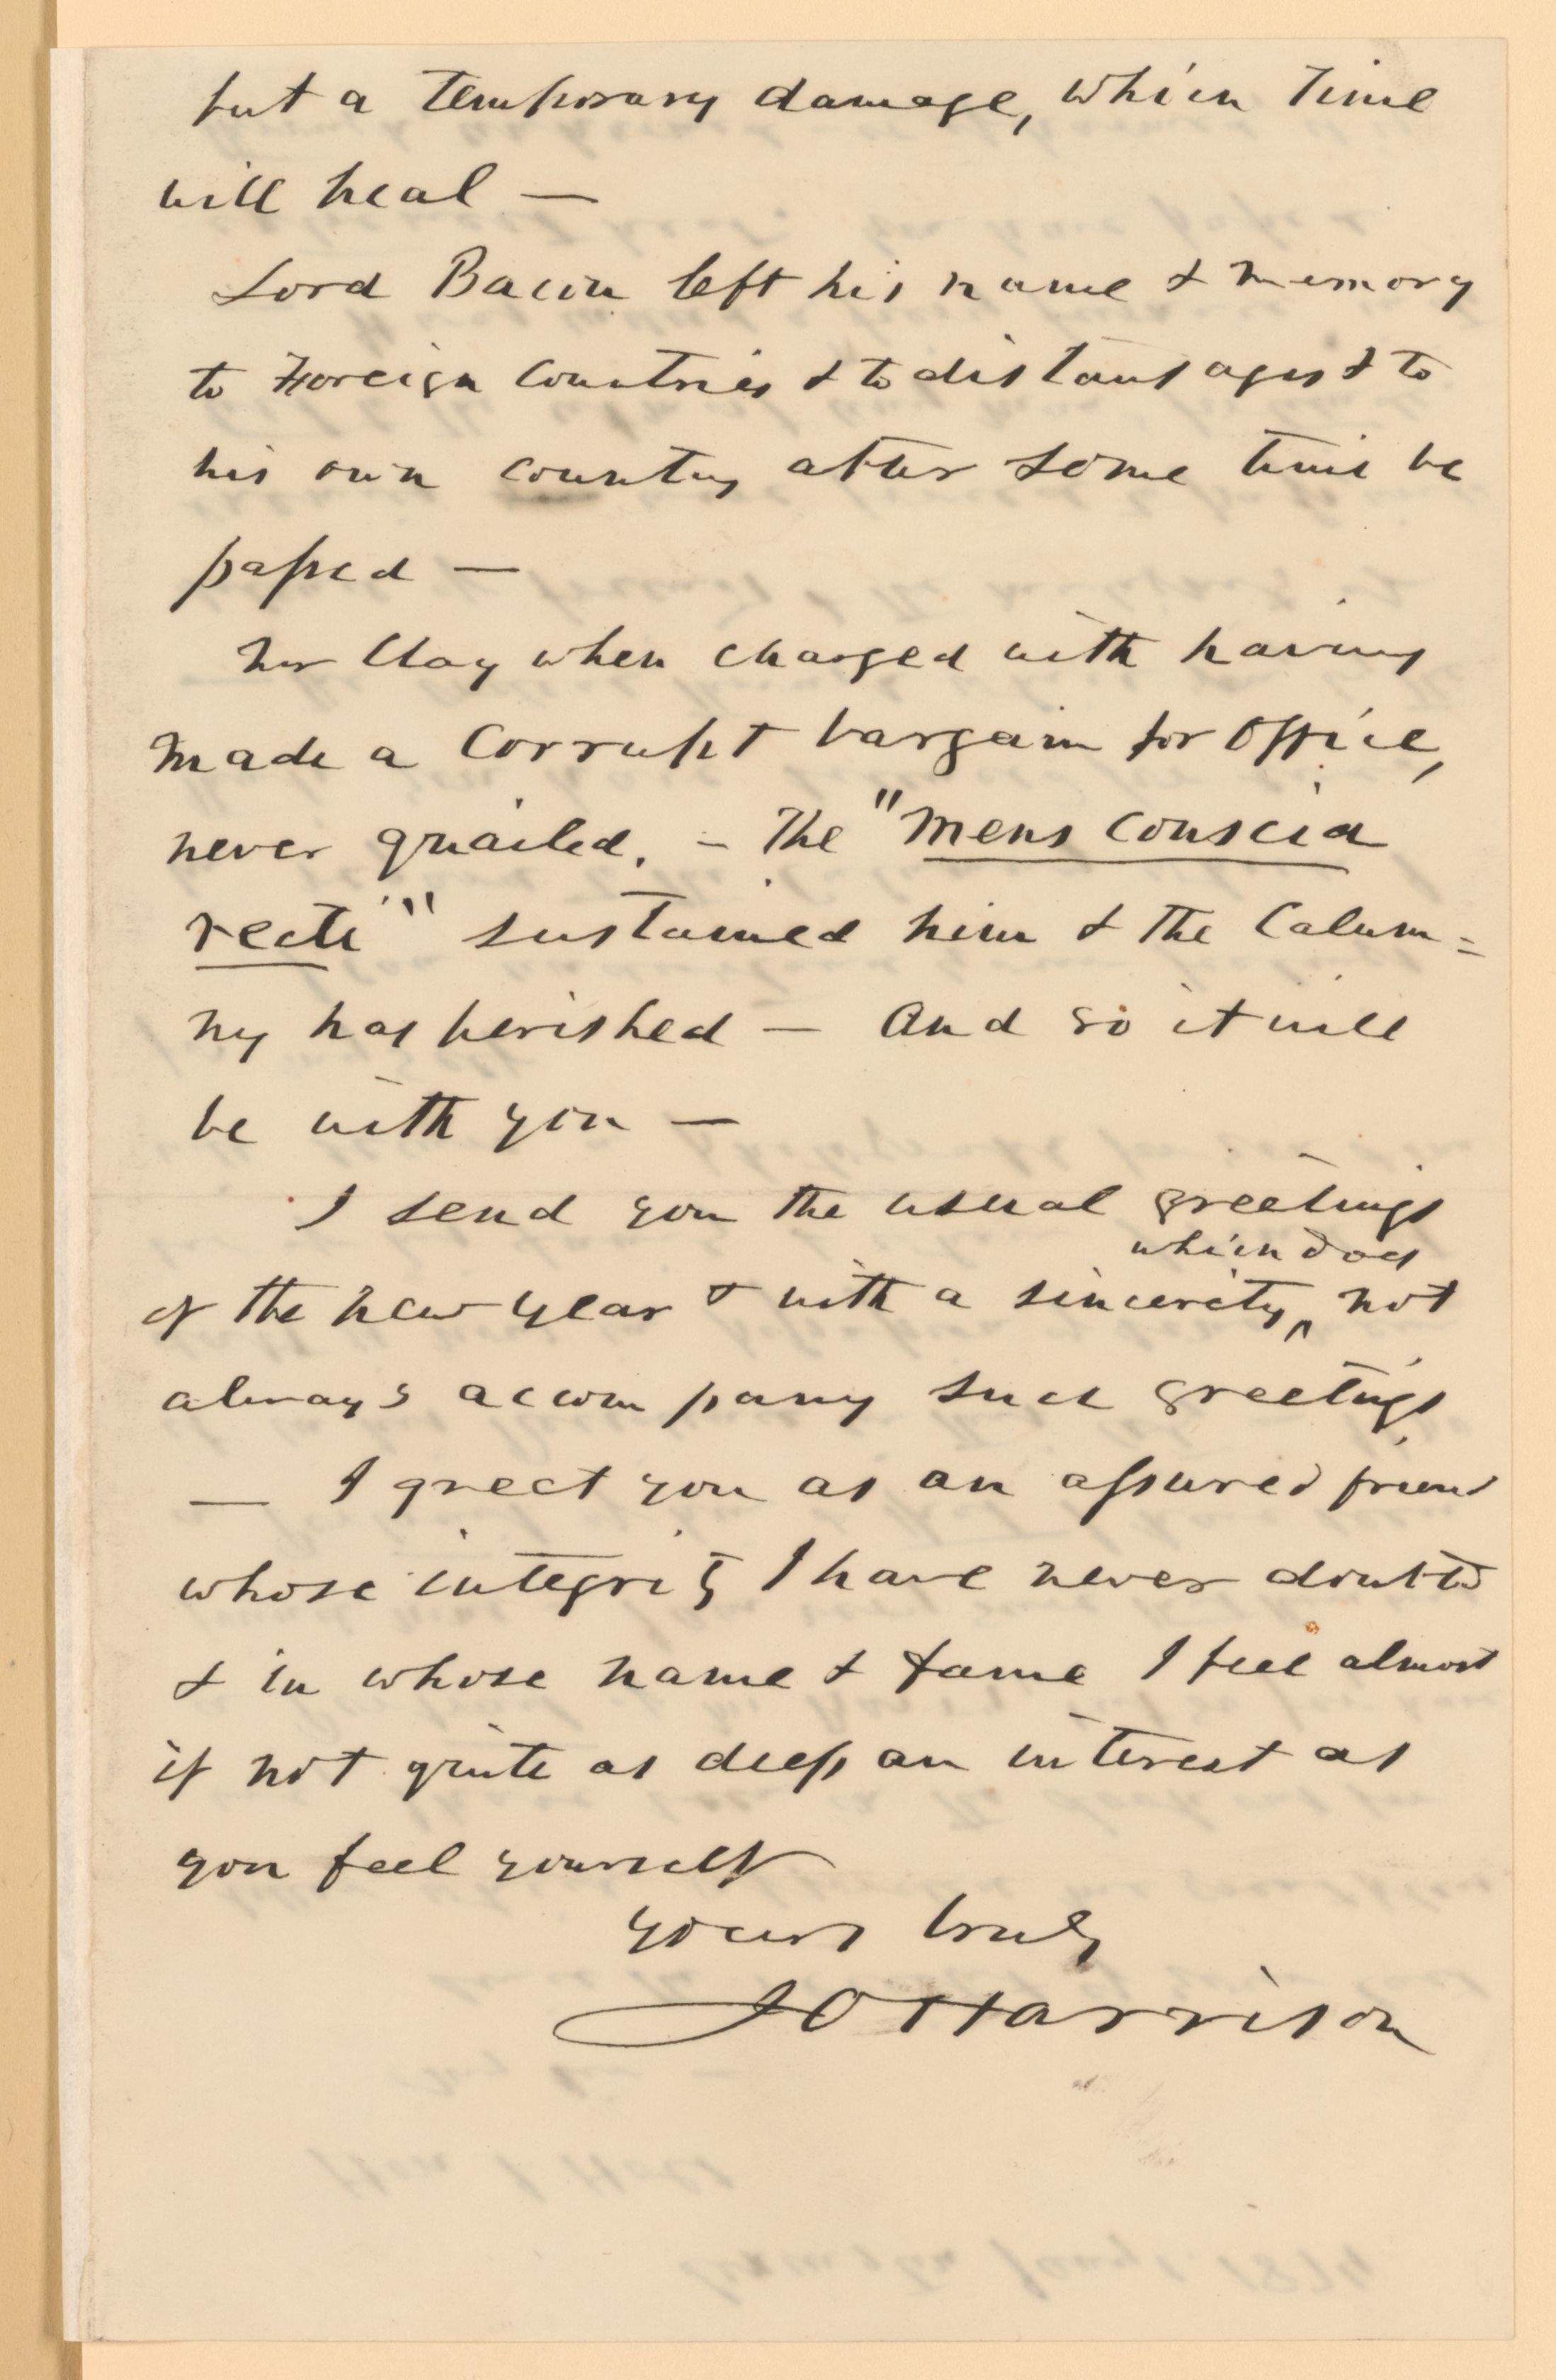 but a temporary damage, which Time
will heal —
Lord Bacon left his name & memory
to Foreign Countries & to distant ages & to
his own country after some time be
passed —
Mr Clay when charged with having
made a Corrupt bargain for Office,
never quailed. – The "mens conscia
recti" sustained him & the Calum=
ny has perished — And so it will
be with you —
I send you the usual greetings
which does
of the new year & with a sincerity ^ not
always accompany such greetings
— I greet you as an assured friend
whose integrity I have never doubted
& in whose name & fame I feel almost
if not quite as deep an interest as
you feel yourself
yours truly
JO Harrison